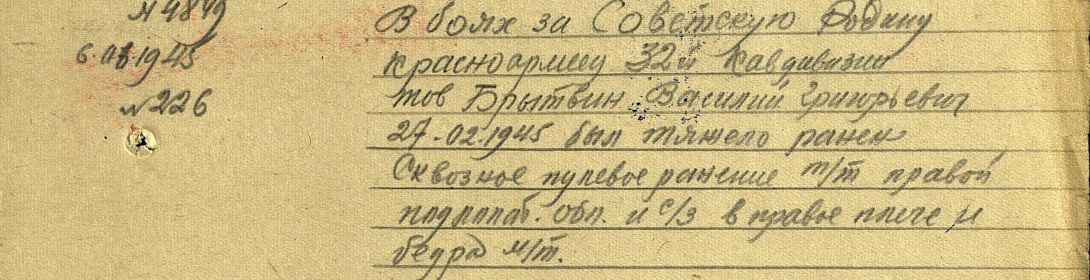 № 4849
В боях за Советскую Родину
6.06.1945
красноармеец 32й Кавдивизии
№ 226
тов Брытвин Василий Григорьевич
27-02.1945 был тяжело ранен
Сквозное пулевое ранение м/т правой
подлопат. обл. и с/з в правое плече и
бедра м/т.